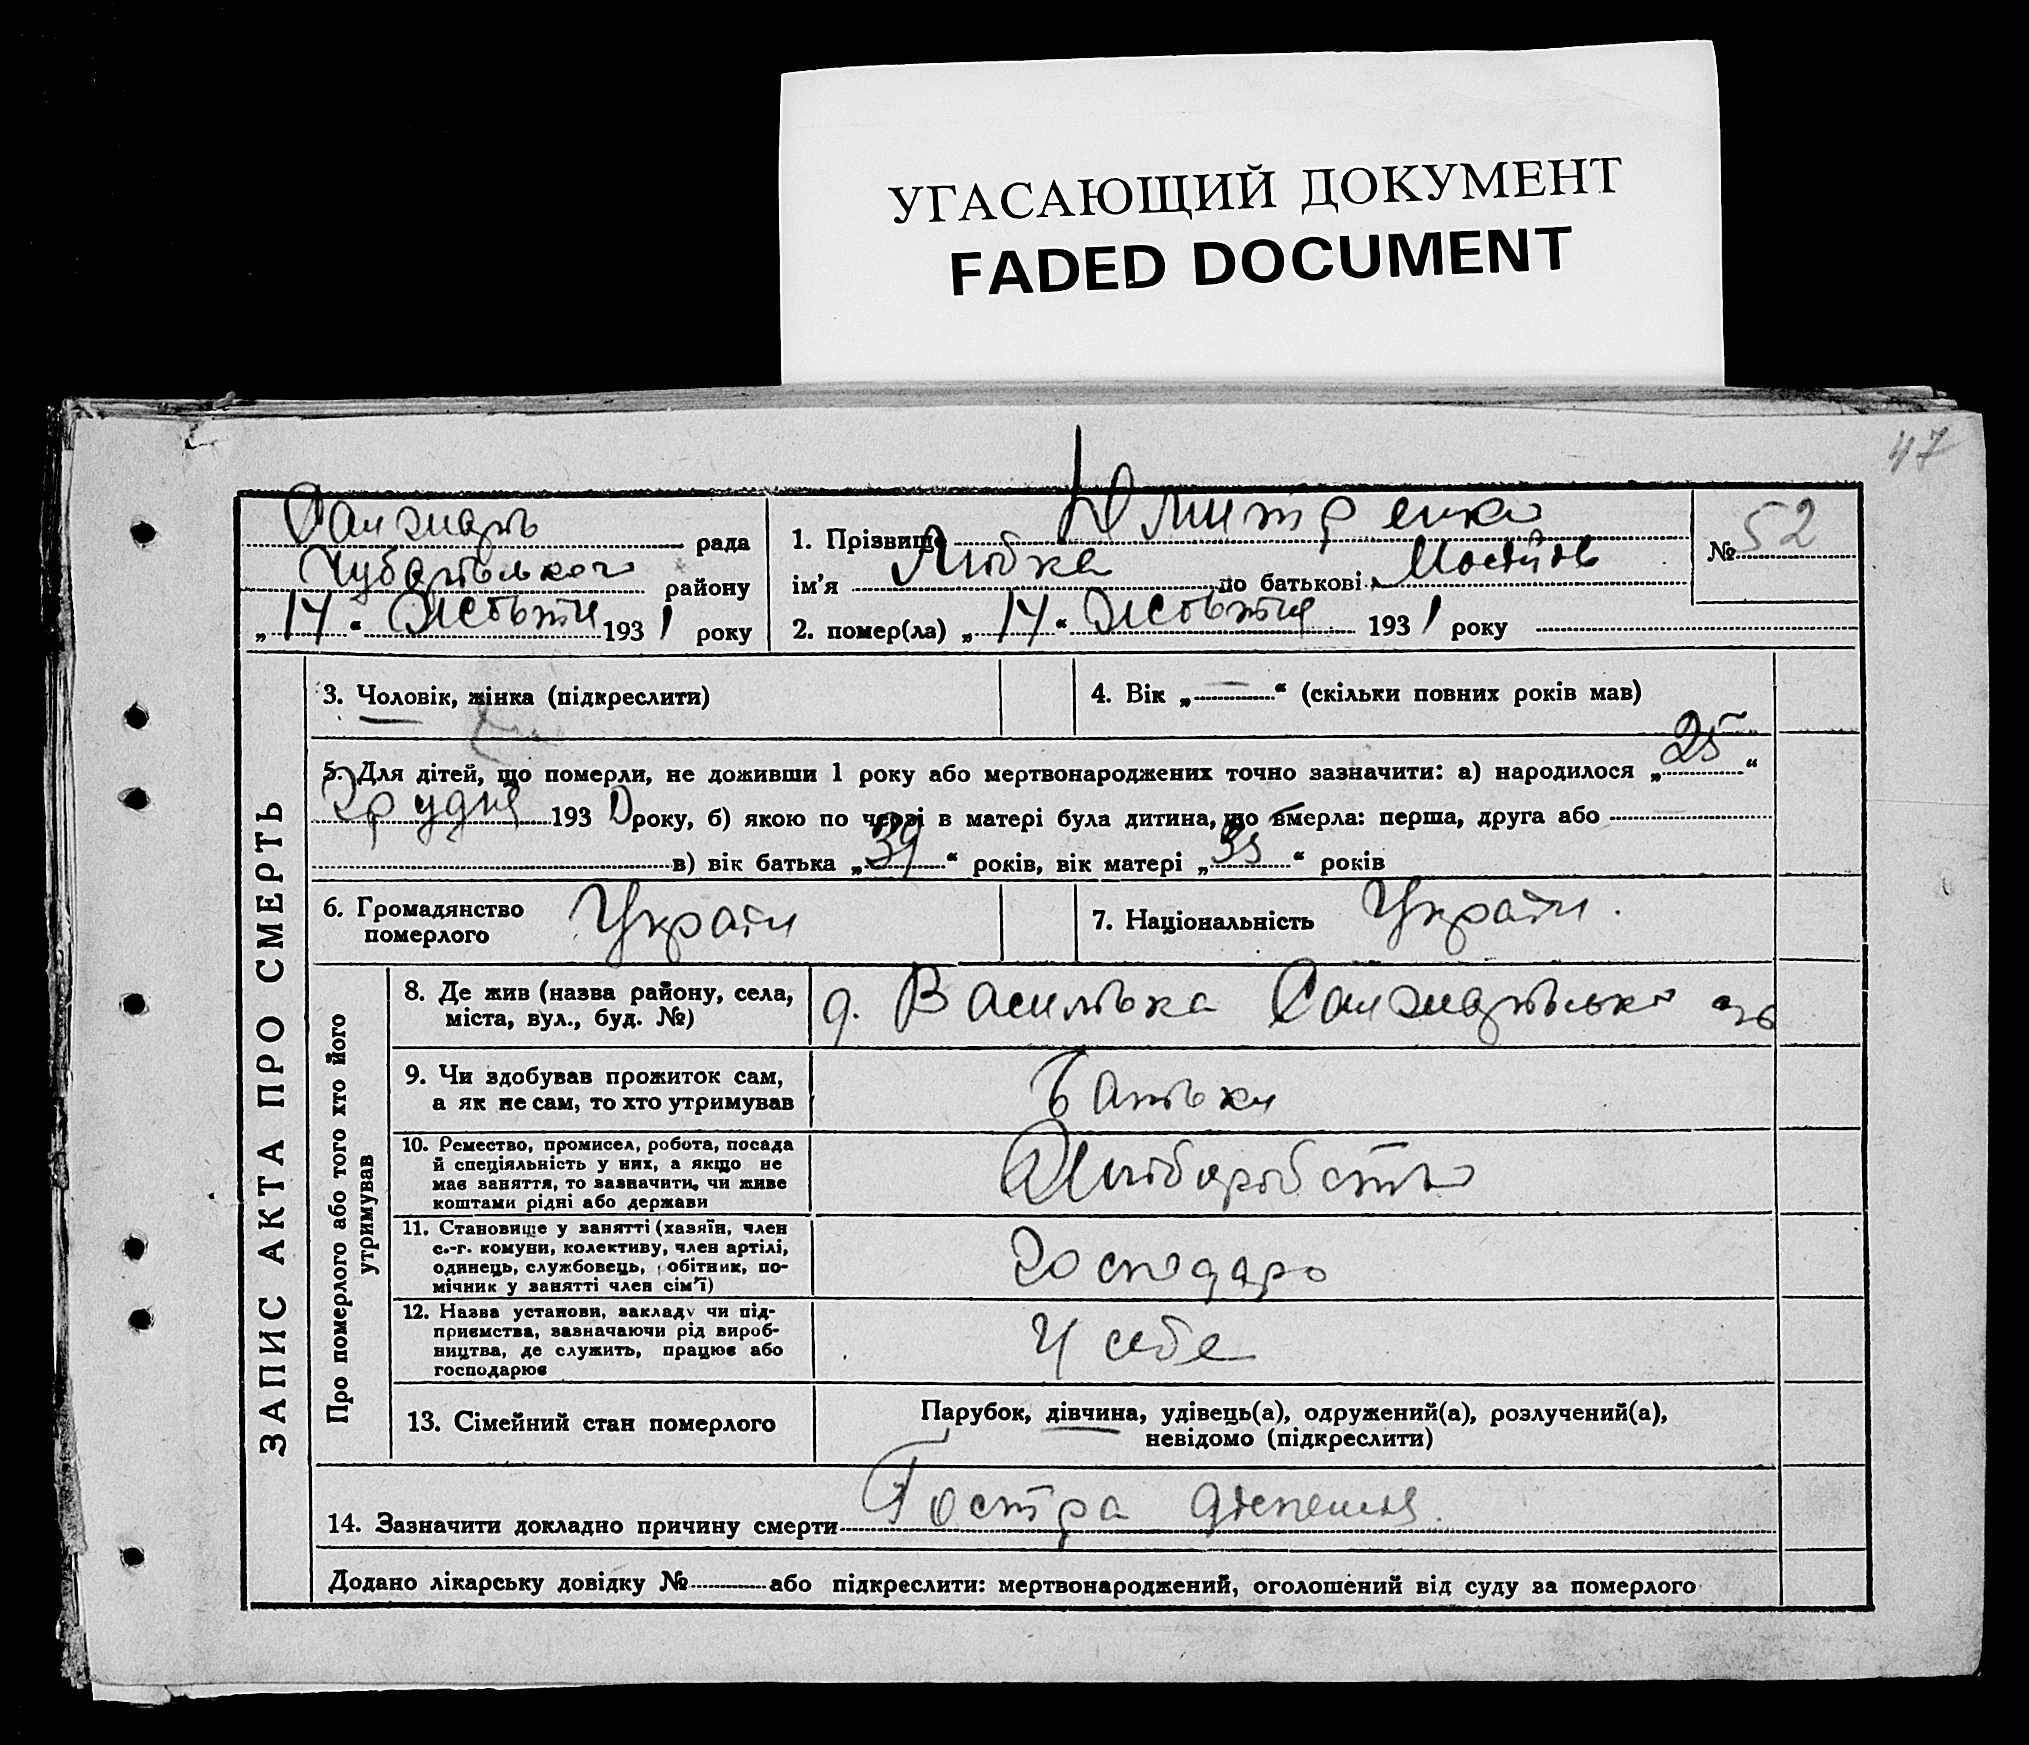 УГАСАЮЩИЙ ДОКУМЕНТ
FADED DOCUMENT
47
рада
району
„14“ Жовтня 1931 року
1. Прізвище Дмитренко
ім'я Любка по батькові
2. помер(ла) „14“ Жовтня 1931 року
№ 52
ЗАПИС АКТА ПРО СМЕРТЬ
3. Чоловік, жінка (підкреслити)
4. Вік „—“ (скільки повних років мав)
5. Для дітей, що померли, не доживши 1 року або мертвонароджених точно зазначити: а) народилося „25“
Грудня 1930 року, б) якою по черзі в матері була дитина, що вмерла: перша, друга або
в) вік батька „39“ років, вік матері „35“ років
6. Громадянство
померлого
Украти
7. Національність Украти.
Про померлого або того хто його
утримував
8. Де жив (назва району, села,
міста, вул., буд. №)
9. Чи здобував прожиток сам,
а як не сам, то хто утримував
Батьки
10. Ремество, промисел, робота, посада
й спеціяльність у них, а якщо не
має заняття, то зазначити, чи живе
коштами рідні або держави
Хліборобство
11. Становище у занятті (хазяїн, член
с.-г. комуни, колективу, член артілі,
одинець, службовець, обітник, по-
мічник у занятті член сім'ї)
Господарь
12. Назва установи, закладу чи під-
приємства, зазначаючи рід вироб-
ництва, де служить, працює або
господарює
У себе
13. Сімейний стан померлого
Парубок, дівчина, удівець(а), одружений(а), розлучений(а),
невідомо (підкреслити)
14. Зазначити докладно причину смерти Гостра
Додано лікарську довідку № або підкреслити: мертвонароджений, оголошений від суду за померлого